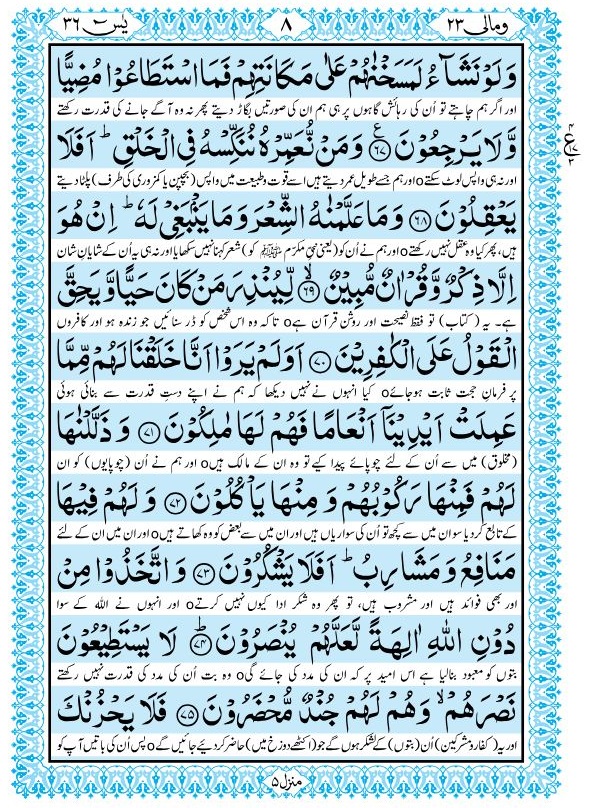 ومالی ۲۳
۸
یٰسٓ ۳۶
وَلَوْ نَشَآءُ لَمَسَخْنٰهُمْ عَلٰى مَكَانَتِهِمْ فَمَا اسْتَطَاعُوْا مُضِيًّا
اور اگر ہم چاہتے تو اُن کی رہائش گاہوں پر ہی ہم ان کی صورتیں بگاڑ دیتے پھر نہ وہ آگے جانے کی قدرت رکھتے
وَّلَا يَرْجِعُوْنَ ﴿۶۷﴾ وَمَنْ نُّعَمِّرْهُ نُنَكِّسْهُ فِي الْخَلْقِ ؕ اَفَلَا
اور نہ ہی واپس لوٹ سکتےo اور ہم جسے طویل عمر دیتے ہیں اسے قوت و طبیعت میں واپس (بچپن یا کمزوری کی طرف) پلٹا دیتے
يَعْقِلُوْنَ ﴿۶۸﴾ وَمَا عَلَّمْنٰهُ الشِّعْرَ وَمَا يَنْۢبَغِيْ لَهٗ ؕ اِنْ هُوَ
ہیں، پھر کیا وہ عقل نہیں رکھتےo اور ہم نے اُن کو (یعنی نبیِ مکرّم ﷺ کو) شعر کہنا نہیں سکھایا اور نہ ہی یہ اُن کے شایانِ شان
اِلَّا ذِكْرٌ وَّقُرْاٰنٌ مُّبِيْنٌ ﴿۶۹﴾ لِّيُنْذِرَ مَنْ كَانَ حَيًّا وَّيَحِقَّ
ہے۔ یہ (کتاب) تو فقط نصیحت اور روشن قرآن ہےo تاکہ وہ اس شخص کو ڈر سنائیں جو زندہ ہو اور کافروں
الْقَوْلُ عَلَى الْكٰفِرِيْنَ ﴿۷۰﴾ اَوَلَمْ يَرَوْا اَنَّا خَلَقْنَا لَهُمْ مِّمَّا
پر فرمانِ حجت ثابت ہو جائےo کیا انہوں نے نہیں دیکھا کہ ہم نے اپنے دستِ قدرت سے بنائی ہوئی
عَمِلَتْ اَيْدِيْنَاۤ اَنْعَامًا فَهُمْ لَهَا مٰلِكُوْنَ ﴿۷۱﴾ وَذَلَّلْنٰهَا
(مخلوق) میں سے اُن کے لئے چوپائے پیدا کیے تو وہ ان کے مالک ہیںo اور ہم نے اُن (چوپایوں) کو ان
لَهُمْ فَمِنْهَا رَكُوْبُهُمْ وَمِنْهَا يَاْكُلُوْنَ ﴿۷۲﴾ وَلَهُمْ فِيْهَا
کے تابع کر دیا سو ان میں سے کچھ تو اُن کی سواریاں ہیں اور ان میں سے بعض کو وہ کھاتے ہیںo اور ان میں ان کے لئے
مَنَافِعُ وَمَشَارِبُ ؕ اَفَلَا يَشْكُرُوْنَ ﴿۷۳﴾ وَاتَّخَذُوْا مِنْ
اور بھی فوائد ہیں اور مشروب ہیں، تو پھر وہ شکر ادا کیوں نہیں کرتےo اور انہوں نے اللہ کے سوا
دُوْنِ اللّٰهِ اٰلِهَةً لَّعَلَّهُمْ يُنْصَرُوْنَ ﴿۷۴﴾ؕ لَا يَسْتَطِيْعُوْنَ
بتوں کو معبود بنا لیا ہے اس امید پر کہ ان کی مدد کی جائے گیo وہ بت اُن کی مدد کی قدرت نہیں رکھتے
نَصْرَهُمْ ۙ وَهُمْ لَهُمْ جُنْدٌ مُّحْضَرُوْنَ ﴿۷۵﴾ فَلَا يَحْزُنْكَ
اور یہ (کفار و مشرکین) اُن (بتوں) کے لشکر ہوں گے جو (اکٹھے دوزخ میں) حاضر کر دیے جائیں گےo پس اُن کی باتیں آپ کو
منزل ۵